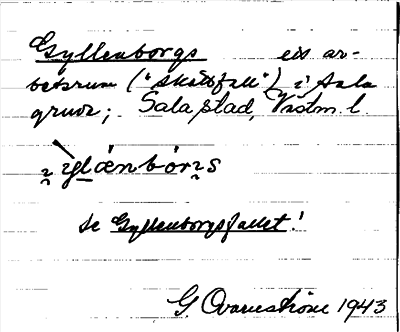 Gyllenborgs ett ar-
betsrum ("skötsfall") i Sala
gruva; Sala stad, Västm. l.
se Gyllenborgsfallet!
G. Qvarnström 1943